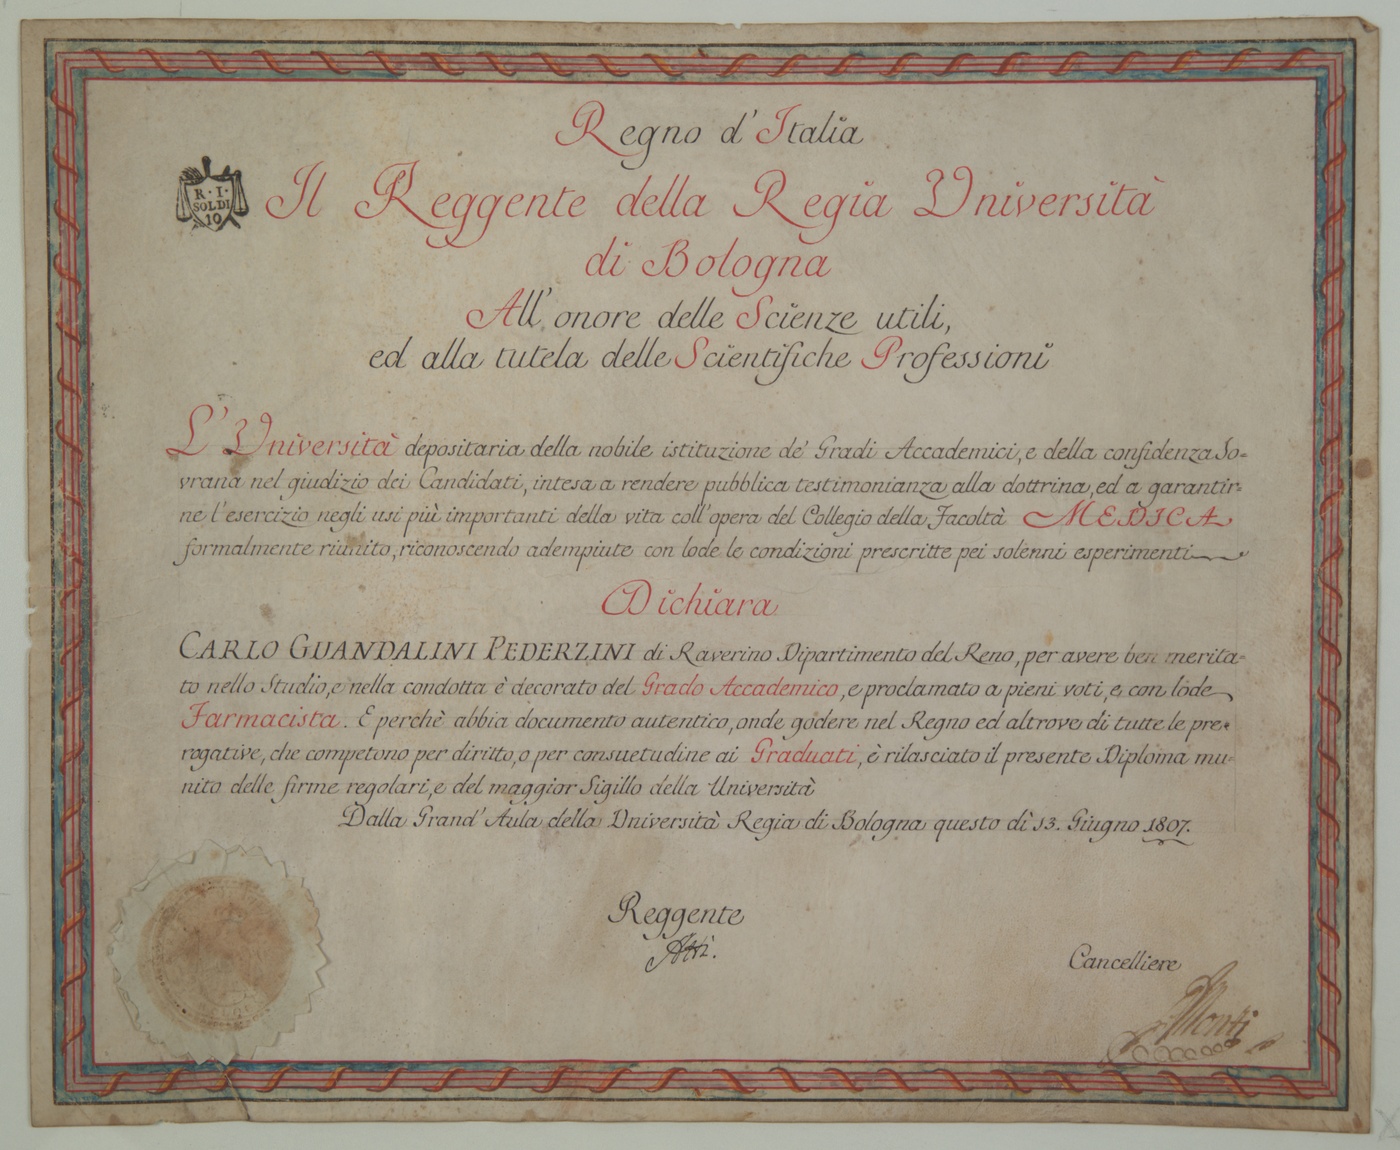 Regno d'Italia
R · I ·
SOLDI
10
Il Reggente della Regia Vniversità
di Bologna
All'onore delle Scienze utili,
ed alla tutela delle Scientifiche Professioni
L'Vniversità depositaria della nobile istituzione de' Gradi Accademici, e della confidenza So=
vrana nel giudizio dei Candidati, intesa a rendere pubblica testimonianza alla dottrina, ed a garantir=
ne l'esercizio negli usi più importanti della vita coll'opera del Collegio della Facoltà MEDICA
formalmente riunito, riconoscendo adempiute con lode le condizioni prescritte pei solenni esperimenti
Dichiara
CARLO GUANDALINI PEDERZINI di Raverino Dipartimento del Reno, per avere ben merita=
to nello Studio, e nella condotta è decorato del Grado Accademico, e proclamato a pieni voti, e con lode
Farmacista. E perchè abbia documento autentico, onde godere nel Regno ed altrove di tutte le pre=
rogative, che competono per diritto, o per consuetudine ai Graduati, è rilasciato il presente Diploma mu=
nito delle firme regolari, e del maggior Sigillo della Università
Dalla Grand'Aula della Vniversità Regia di Bologna questo dì 13. Giugno 1807.
Reggente
Cancelliere
Monti